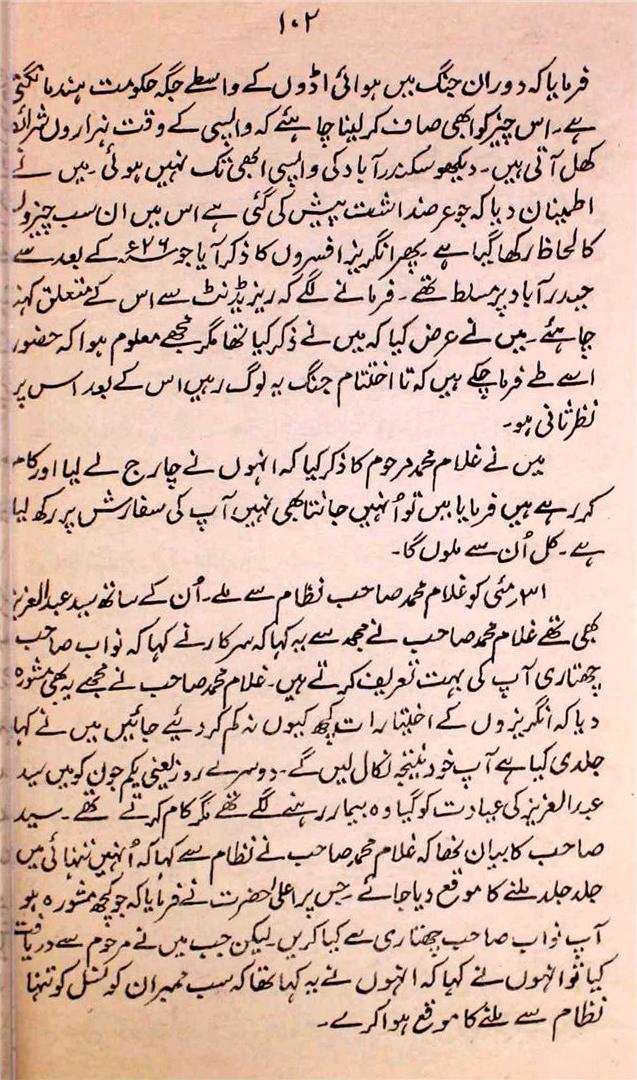 ۱۰۲
فرمایا کہ دوران جنگ میں ہوائی اڈوں کے واسطے جگہ حکومت ہند مانگتی
ہے۔ اس چیز کو ابھی صاف کر لینا چاہئے کہ واپسی کے وقت ہزاروں شرائط
کھل آتی ہیں۔ دیکھو سکندرآباد کی واپسی ابھی تک نہیں ہوئی۔ میں نے
اطمینان دیا کہ جو عرضداشت پیش کی گئی ہے اس میں ان سب چیزوں
کا لحاظ رکھا گیا ہے۔ پھر انگریز افسروں کا ذکر آیا جو ۲۶ء کے بعد سے
حیدرآباد پر مسلط تھے۔ فرمانے لگے کہ ریزیڈنٹ سے اس کے متعلق کہنا
چاہئے۔ میں نے عرض کیا کہ میں نے ذکر کیا تھا مگر مجھے معلوم ہوا کہ حضور
اسے طے فرما چکے ہیں کہ تا اختتام جنگ یہ لوگ رہیں اس کے بعد اس پر
نظر ثانی ہو۔
میں نے غلام محمد مرحوم کا ذکر کیا کہ انہوں نے چارج لے لیا اور کام
کر رہے ہیں فرمایا میں تو اُنہیں جانتا بھی نہیں آپ کی سفارش پر رکھ لیا
ہے۔ کل اُن سے ملوں گا۔
۳۱ مئی کو غلام محمد صاحب نظام سے ملے۔ اُن کے ساتھ سید عبدالعزیز
بھی تھے غلام محمد صاحب نے مجھ سے یہ کہا کہ سرکار نے کہا کہ نواب صاحب
چھتاری آپ کی بہت تعریف کرتے ہیں۔ غلام محمد صاحب نے مجھے یہ بھی مشورہ
دیا کہ انگریزوں کے اختیارات کچھ کیوں نہ کم کر دیئے جائیں میں نے کہا
جلدی کیا ہے آپ خود نتیجہ نکال لیں گے۔ دوسرے روز یعنی یکم جون کو میں سید
عبدالعزیز کی عیادت کو گیا وہ بیمار رہنے لگے تھے مگر کام کرتے تھے۔ سید
صاحب کا بیان تھا کہ غلام محمد صاحب نے نظام سے کہا کہ اُنہیں تنہائی میں
جلد جلد ملنے کا موقع دیا جائے۔ جس پر اعلیٰحضرت نے فرمایا کہ جو کچھ مشورہ ہو
آپ نواب صاحب چھتاری سے کیا کریں۔ لیکن جب میں نے مرحوم سے دریافت
کیا تو انہوں نے کہا کہ انہوں نے یہ کہا تھا کہ سب ممبران کونسل کو تنہا
نظام سے ملنے کا موقع ہوا کرے۔